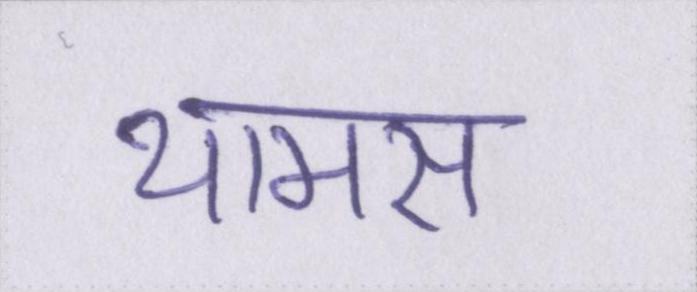 थामस